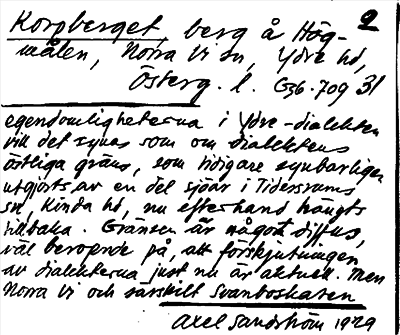 Korpberget berg å Hög- 2
målen, Norra Vi sn, Ydre hd,
Österg. l. G36.709 31
egendomligheterna i Ydre-dialekten
vill det synas som om dialektens
östliga gräns, som tidigare synbarligen
utgjorts av en del sjöar i Tidersrums
sn, Kinda hd, nu efterhand trängts
tillbaka. Gränsen är något diffus,
väl beroende på, att förskjutningen
av dialekterna just nu är aktuell. Men
Norra Vi och särskilt Svanboskaten
Axel Sandström 1929